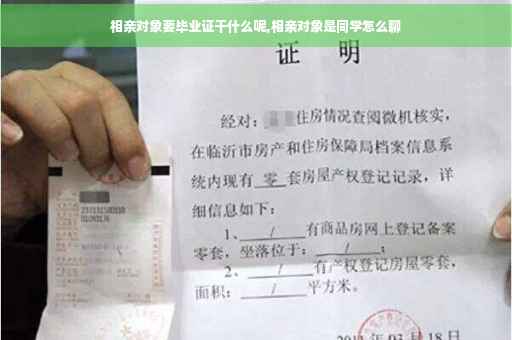 相亲对象要毕业证干什么呢,相亲对象是同学怎么聊
证 明
经对: 住房情况查阅微机核实,
在临沂市房产和住房保障局档案信息系
统内现有 零 套房屋产权登记记录,详
细信息如下:
1、 / 有商品房网上登记备案
零套,坐落位于: / ;
2、 / 有产权登记房屋零套,
面积: / 平方米。
03 月 18 日